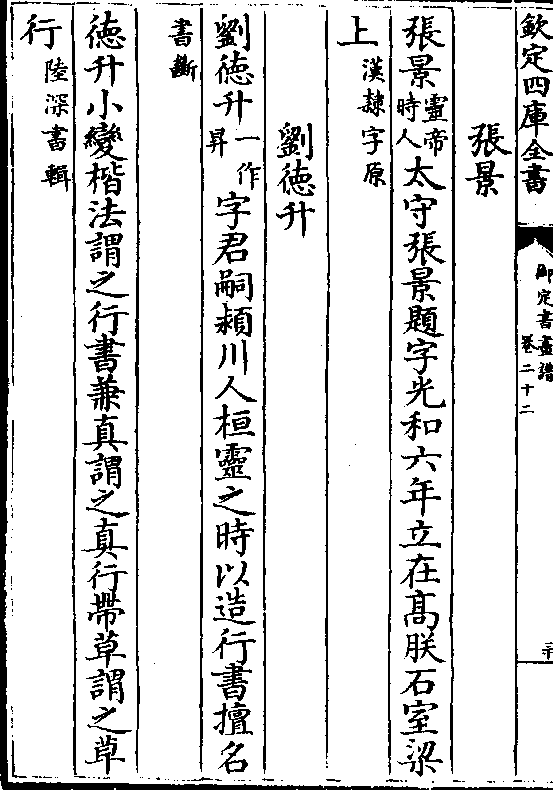 欽定四庫全書
御定書畫譜
卷二十二
張景
張景靈帝時人太守張景題字光和六年立在髙朕石室梁
上漢隸字原
劉徳升
劉徳升一作昇字君嗣潁川人桓靈之時以造行書擅名
書斷
徳升小變楷法謂之行書兼真謂之真行帶草謂之草
行陸深書輯